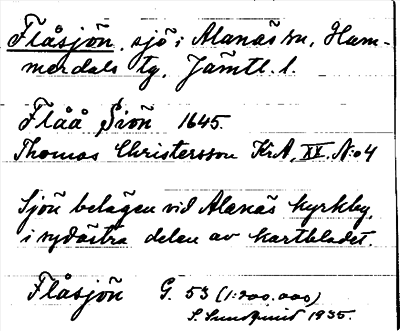 Flåsjön, sjö i Alanäs sn, Ham-
merdals tg, Jämtl. l.
Flåå Siön 1645.
Thomas Christersson KrA, XX. N:o 4
Sjön belägen vid Alanäs kyrkby,
i sydöstra delen av kartbladet.
Flåsjön G. 53 (1:200.000)
S. Sundquist 1935.